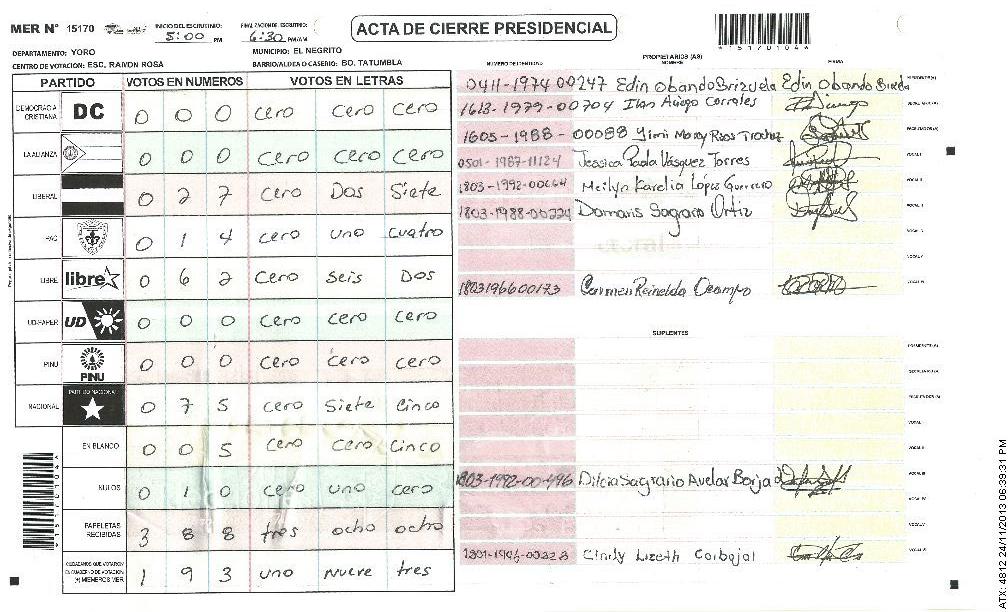 MER N° 15170
INICIO DEL ESCRUTINIO: 5:00 PM
FINALIZACION DE ESCRUTINIO: 6:30 PM/AM
ACTA DE CIERRE PRESIDENCIAL
*15170104*
DEPARTAMENTO: YORO
MUNICIPIO: EL NEGRITO
CENTRO DE VOTACION: ESC. RAMON ROSA
BARRIO/ALDEA O CASERIO: BO. TATUMBLA
PARTIDO VOTOS EN NUMEROS VOTOS EN LETRAS
DEMOCRACIA CRISTIANA DC 0 0 0 cero cero cero
LA ALIANZA 0 0 0 cero cero cero
LIBERAL 0 2 7 cero Dos Siete
PAC 0 1 4 cero uno cuatro
LIBRE libre 0 6 2 cero Seis Dos
UD-FAPER UD 0 0 0 cero cero cero
PINU PINU 0 0 0 cero cero cero
NACIONAL PARTIDO NACIONAL 0 7 5 cero Siete Cinco
EN BLANCO 0 0 5 cero cero Cinco
NULOS 0 1 0 cero uno cero
PAPELETAS RECIBIDAS 3 8 8 tres ocho ocho
CIUDADANOS QUE VOTARON EN CUADERNO DE VOTACION (+) MIEMBROS MER 1 9 3 uno nueve tres
*15170104*
NUMERO DE IDENTIDAD PROPIETARIOS (AS) NOMBRE FIRMA
0411-1974 00247 Edin Obando Brizuela
1613-1979-00704
1605-1988-00088
0501-1987-11124 Jessica Paola Vásquez Torres
1803-1992-00664 Meilyn Karelia López Guerrero
1803-1988-00224 Damaris Sagrario Ortiz
1803196600173 Carmen Reinelda Ocampo
SUPLENTES
1803-1992-00496 Dilcia Sagrario Avelar Borja
Cindy Lizeth Carbajal
ATX: 4812 24/11/2013 06:39:31 PM